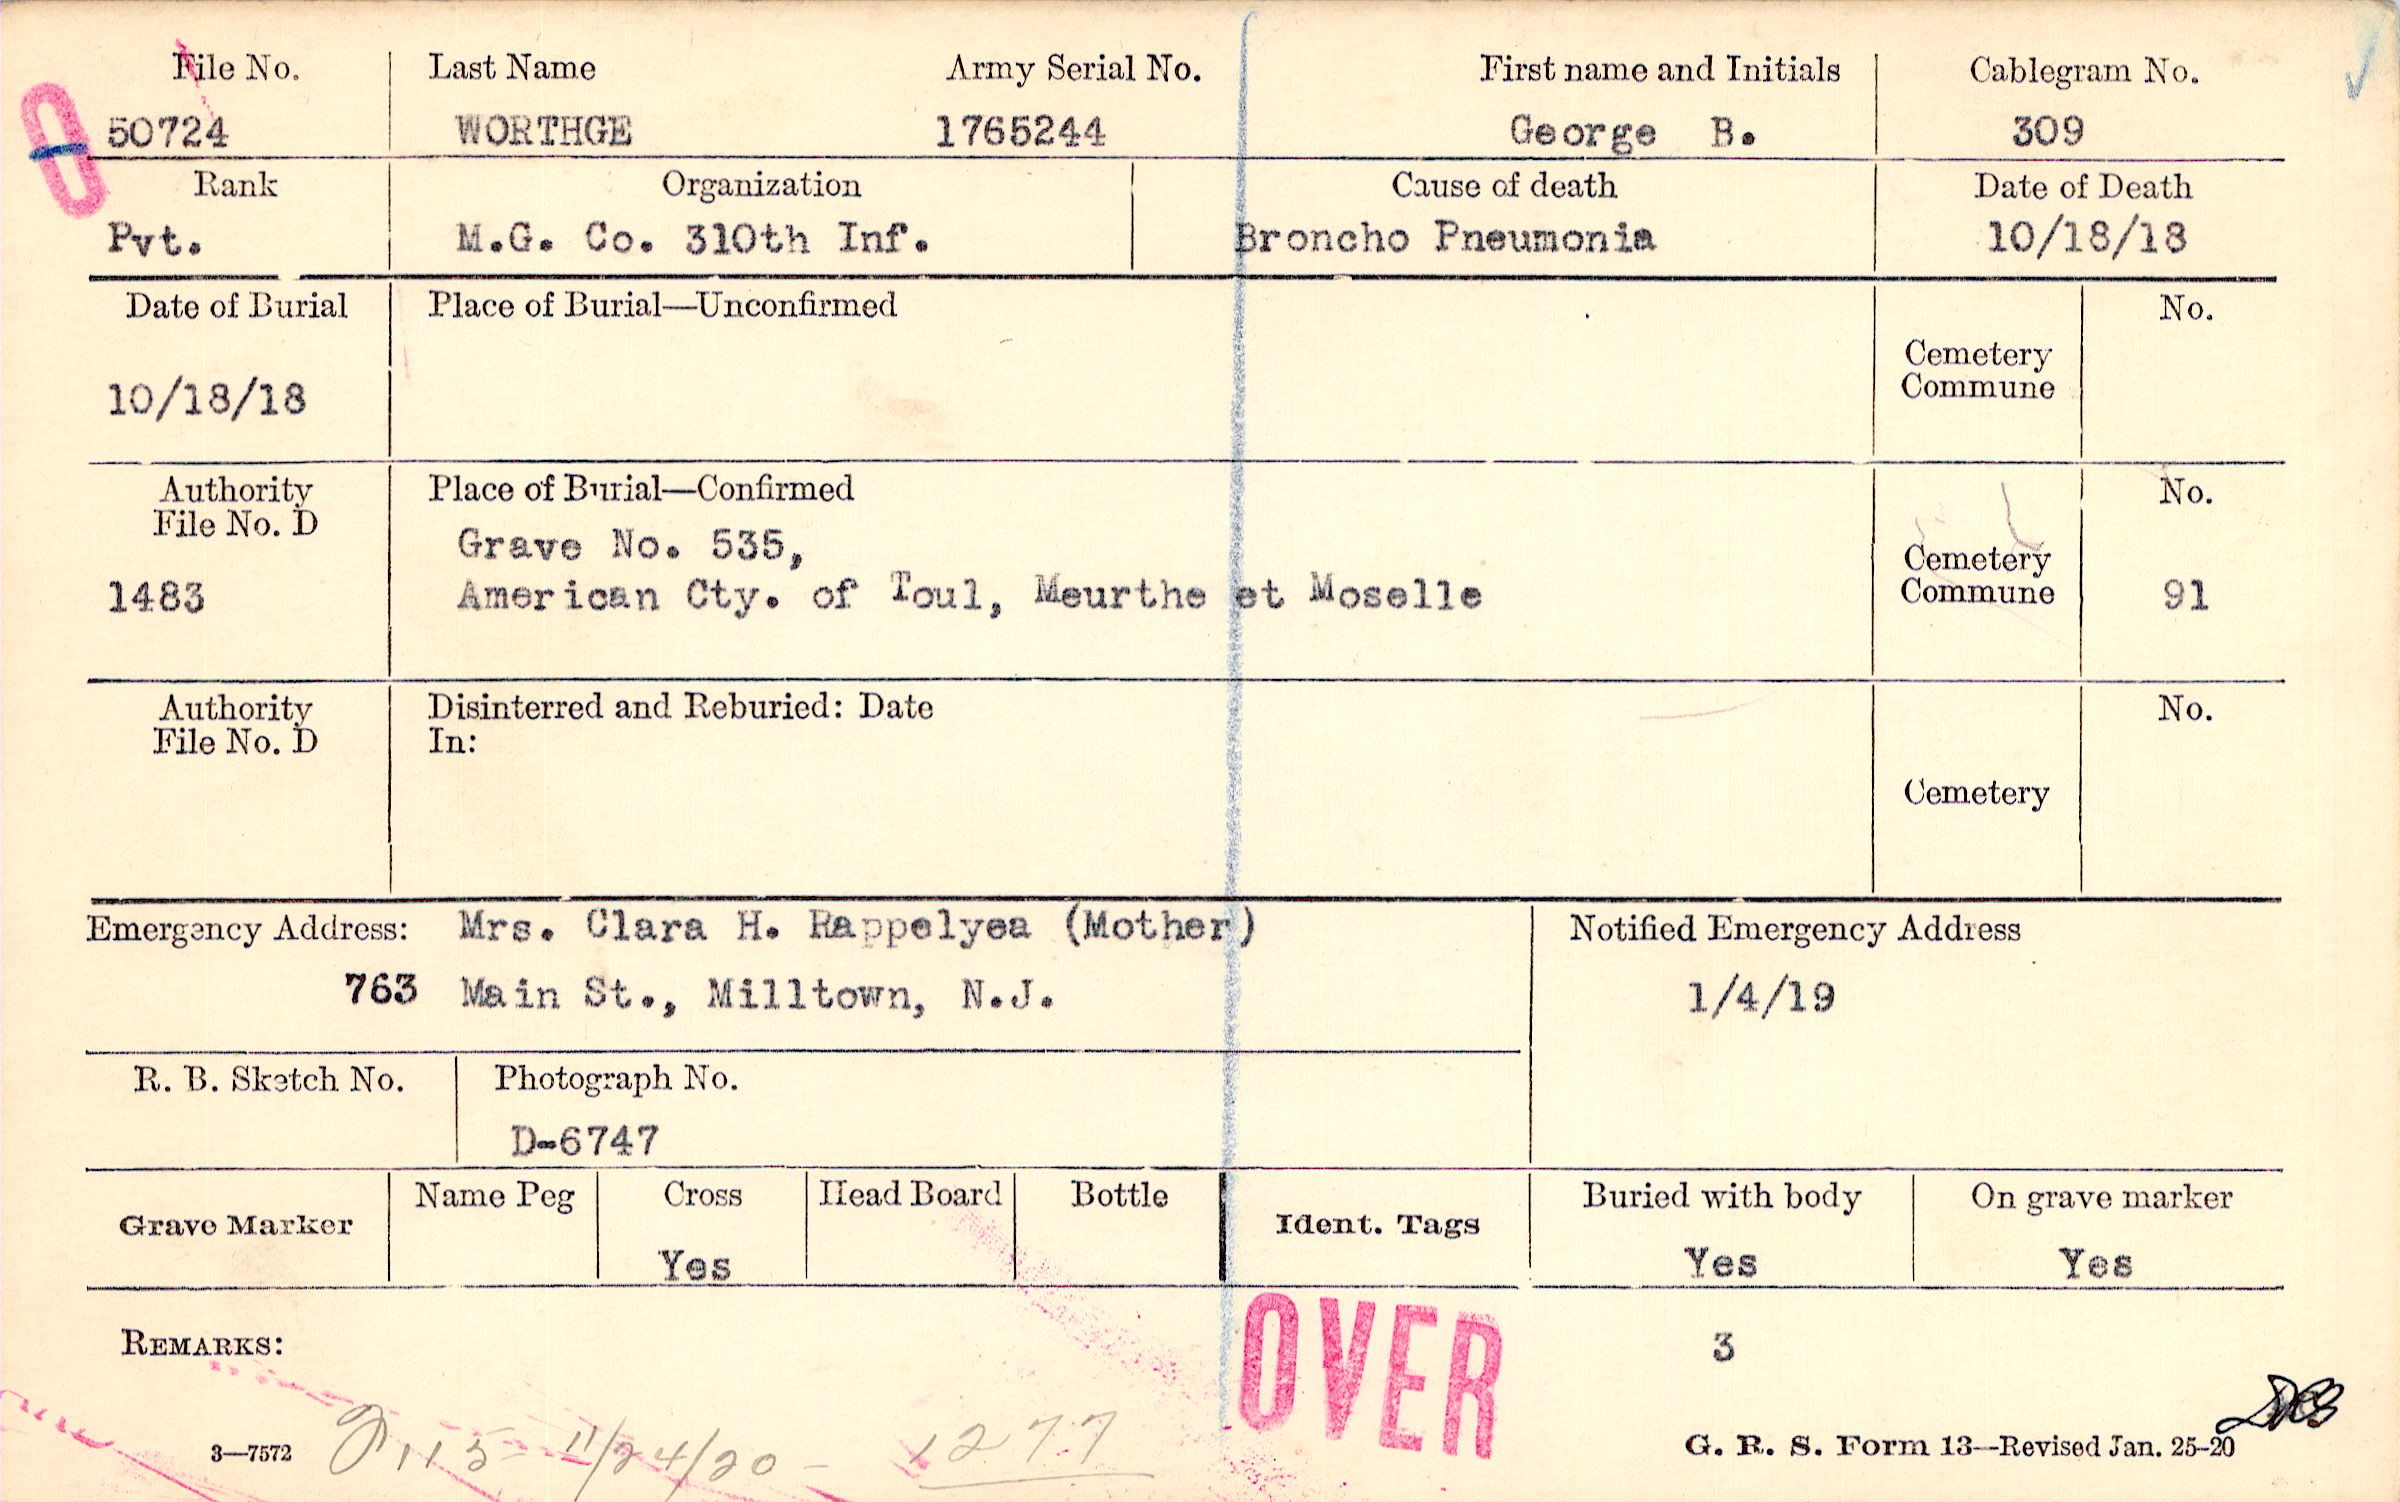 File No. Last Name Army Serial No. First name and Initials Cablegram No.
50724 WORTHGE 1765244 George B. 309
Rank Organization Cause of death Date of Death
Pvt. M.G. Co. 310th Inf. Broncho Pneumonia 10/18/18
Date of Burial Place of Burial—Unconfirmed No.
Cemetery
Commune
10/18/18
Authority Place of Burial—Confirmed No.
File No. D
Grave No. 535,
Cemetery
1483 American Cty. of Toul, Meurthe et Moselle Commune 91
Authority Disinterred and Reburied: Date No.
File No. D In:
Cemetery
Emergency Address: Mrs. Clara H. Rappelyea (Mother) Notified Emergency Address
763 Main St., Milltown, N.J. 1/4/19
R. B. Sketch No. Photograph No.
D-6747
Grave Marker Name Peg Cross Head Board Bottle Ident. Tags Buried with body On grave marker
Yes Yes Yes
REMARKS: OVER 3
3—7572 115 - 11/24/20 - 1277 G. R. S. Form 13—Revised Jan. 25-20